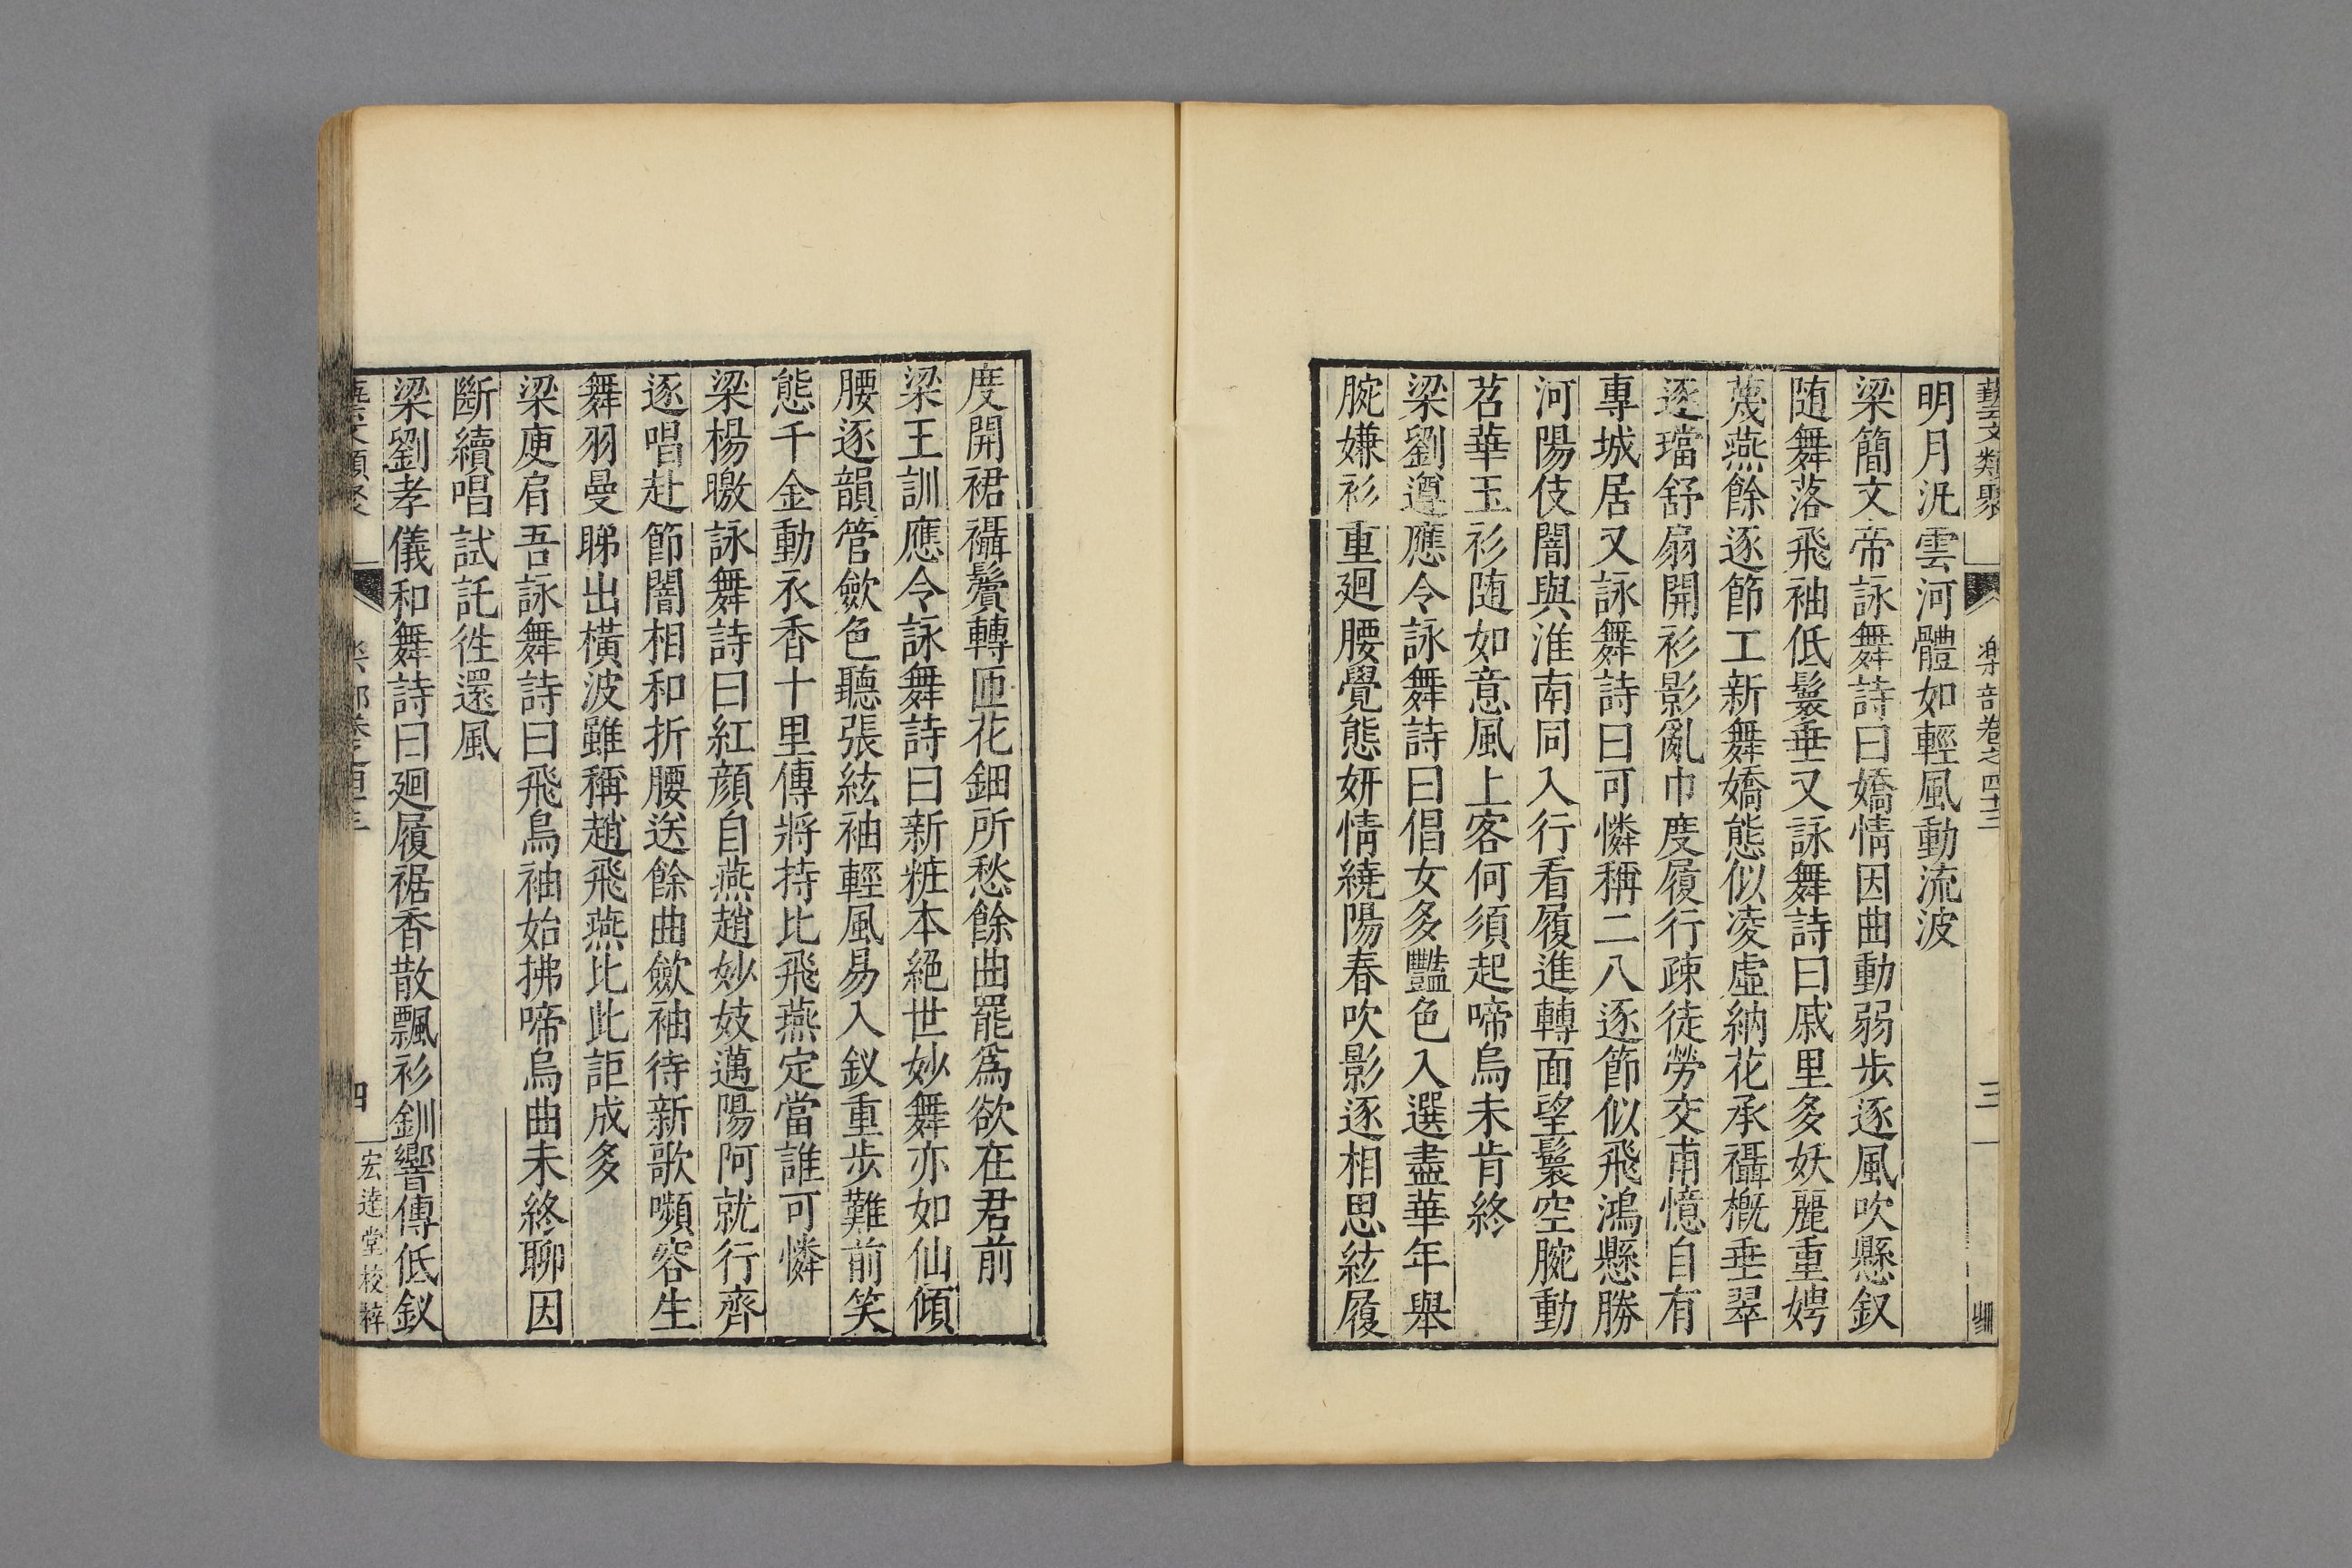 藝文類聚 樂部卷之四十三 三
明月泛雲河體如輕風動流波
梁簡文帝詠舞詩曰嬌情因曲動弱步逐風吹懸釵
随舞落飛袖低鬟垂又詠舞詩曰戚里多妖麗重娉
蔑燕餘逐節工新舞嬌態似凌虛納花承襵概垂翠
逐璫舒扇開衫影亂巾度履行疎徒勞交甫憶自有
專城居又詠舞詩曰可憐稱二八逐節似飛鴻懸勝
河陽伎闇與淮南同入行看履進轉面望鬟空腕動
苕華玉衫随如意風上客何須起啼烏未肯終
梁劉遵應令詠舞詩曰倡女多豔色入選盡華年舉
腕嫌衫重廻腰覺態妍情繞陽春吹影逐相思絃履
度開裙襵鬢轉匝花鈿所愁餘曲罷爲欲在君前
梁王訓應令詠舞詩曰新粧本絕世妙舞亦如仙傾
腰逐韻管斂色聽張絃袖輕風易入釵重步難前笑
態千金動衣香十里傳將持比飛燕定當誰可憐
梁楊暾詠舞詩曰紅顏自燕趙妙妓邁陽阿就行齊
逐唱赴節闇相和折腰送餘曲斂袖待新歌嚬容生
舞羽曼睇出橫波雖稱趙飛燕比此詎成多
梁庾肩吾詠舞詩曰飛鳥袖始拂啼烏曲未終聊因
斷續唱試託徃還風
梁劉孝儀和舞詩曰廻履裾香散飄衫釧響傳低釵
四 宏達堂校梓